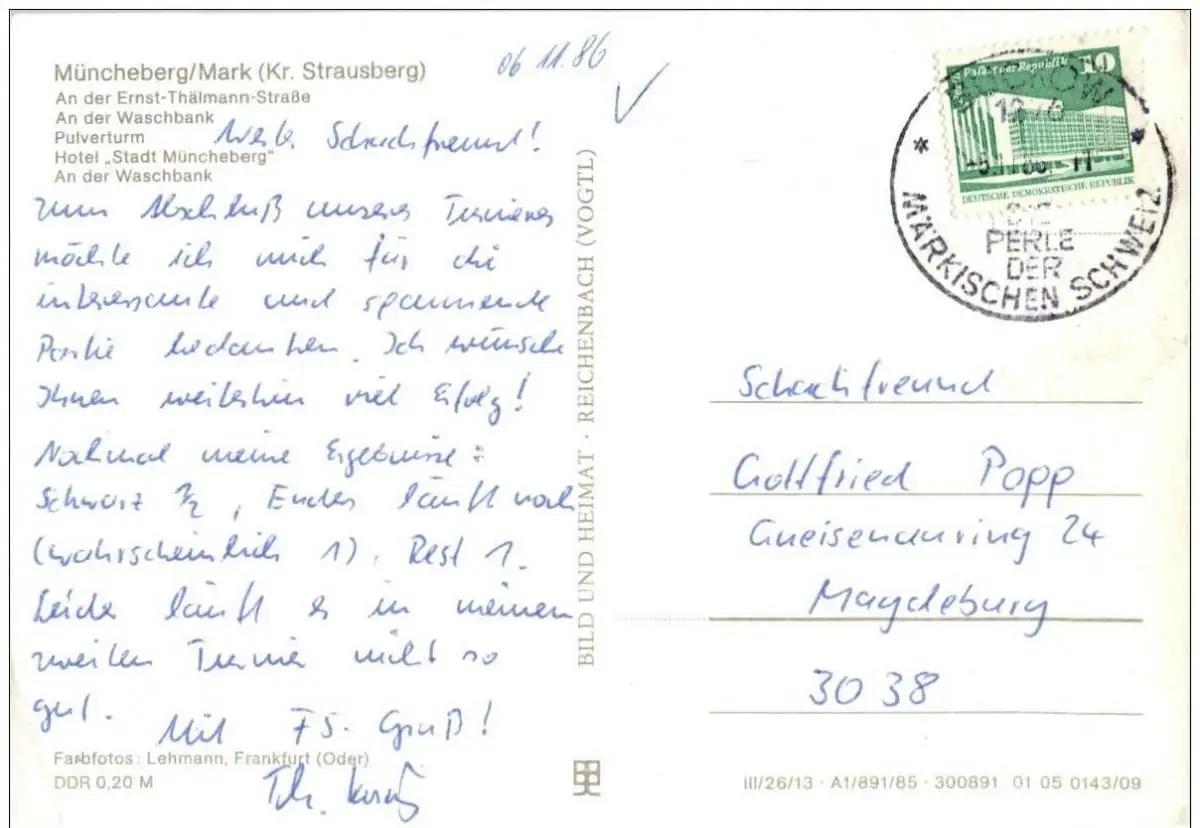 Müncheberg/Mark (Kr. Strausberg)
An der Ernst-Thälmann-Straße
An der Waschbank
Pulverturm
Hotel „Stadt Müncheberg"
An der Waschbank
06 11.86
Werter Schachfreund!
zum Abschluß unseres Turnieres
möchte ich mich für die
interessante und spannende
Partie bedanken. Ich wünsche
Ihnen weiterhin viel Erfolg!
Nochmal meine Ergebnisse:
Schwarz ½, Endes läuft noch
(wahrscheinlich 1), Rest 1.
Leider läuft es in meinem
zweiten Turnier nicht so
gut.
Mit FS-Gruß!
Th.
Farbfotos: Lehmann, Frankfurt (Oder)
DDR 0,20 M
BILD UND HEIMAT · REICHENBACH (VOGTL)
Palast der Republik 10
DEUTSCHE DEMOKRATISCHE REPUBLIK
DIE
PERLE
DER
MÄRKISCHEN SCHWEIZ
Schachfreund
Gottfried Popp
Gneisenauring 24
Magdeburg
3038
III/26/13 · A1/891/85 · 300891 01 05 0143/09